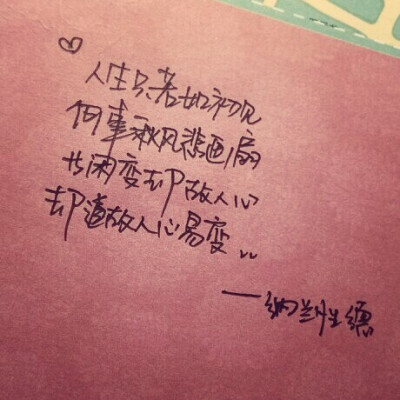 人生只若如初见
何事秋风悲画扇
等闲变却故人心
却道故人心易变..
——纳兰性德